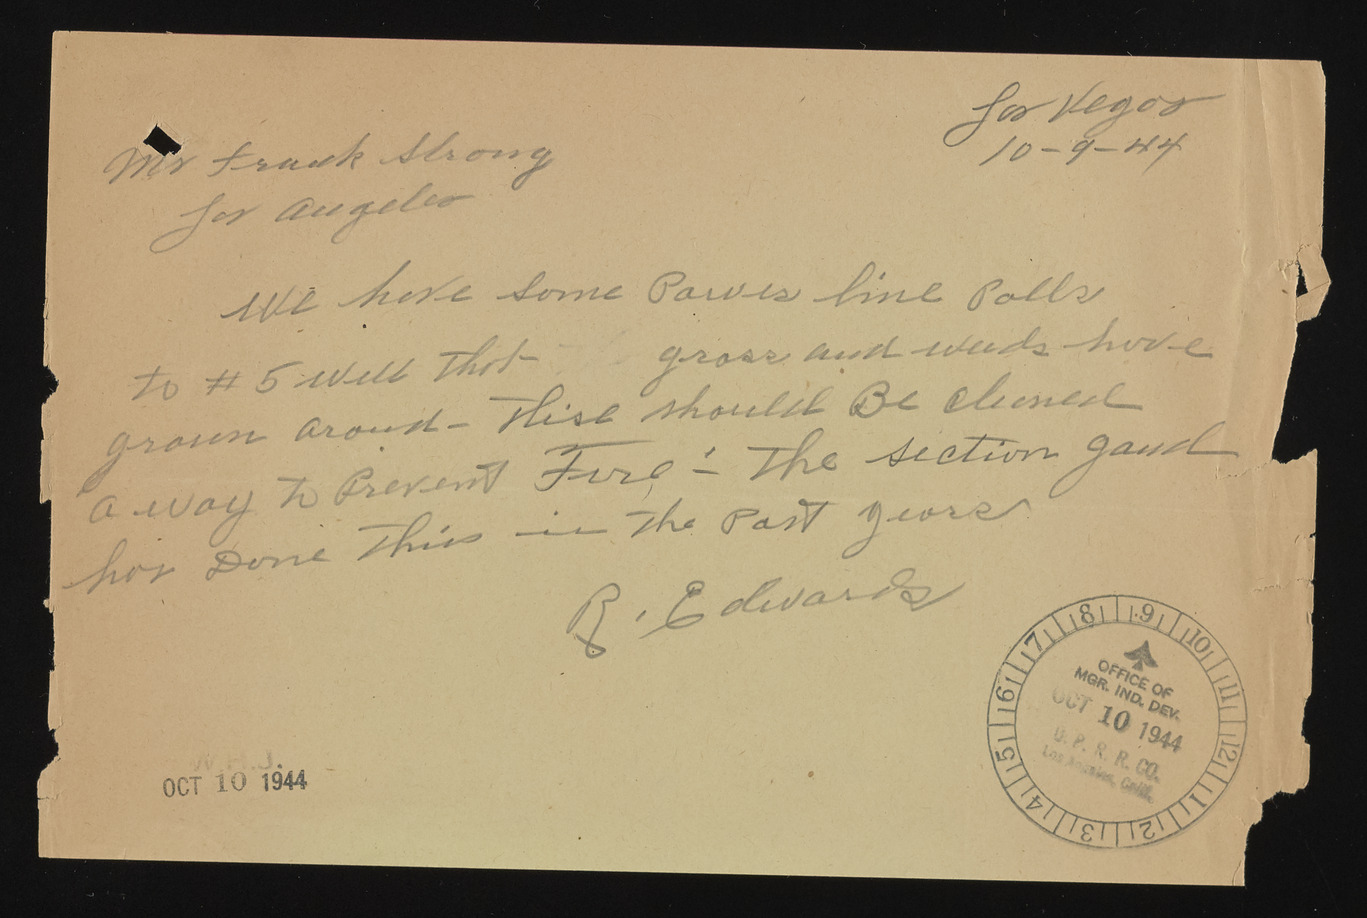 Las Vegas
10-9-44
Mr Frank Strong
Los Angeles
We have some Power line Polls
to #5 well that grass and weeds have
grown aroud - thise should Be cleaned
a way to Prevent Fire - The section gand
has Done this in the Past years
R. Edwards
W.H.J.
OCT 10 1944
OFFICE OF
MGR. IND. DEV.
OCT 10 1944
U. P. R. R. CO.
Los Angeles, Calif.
1 2 3 4 5 6 7 8 9 10 11 12